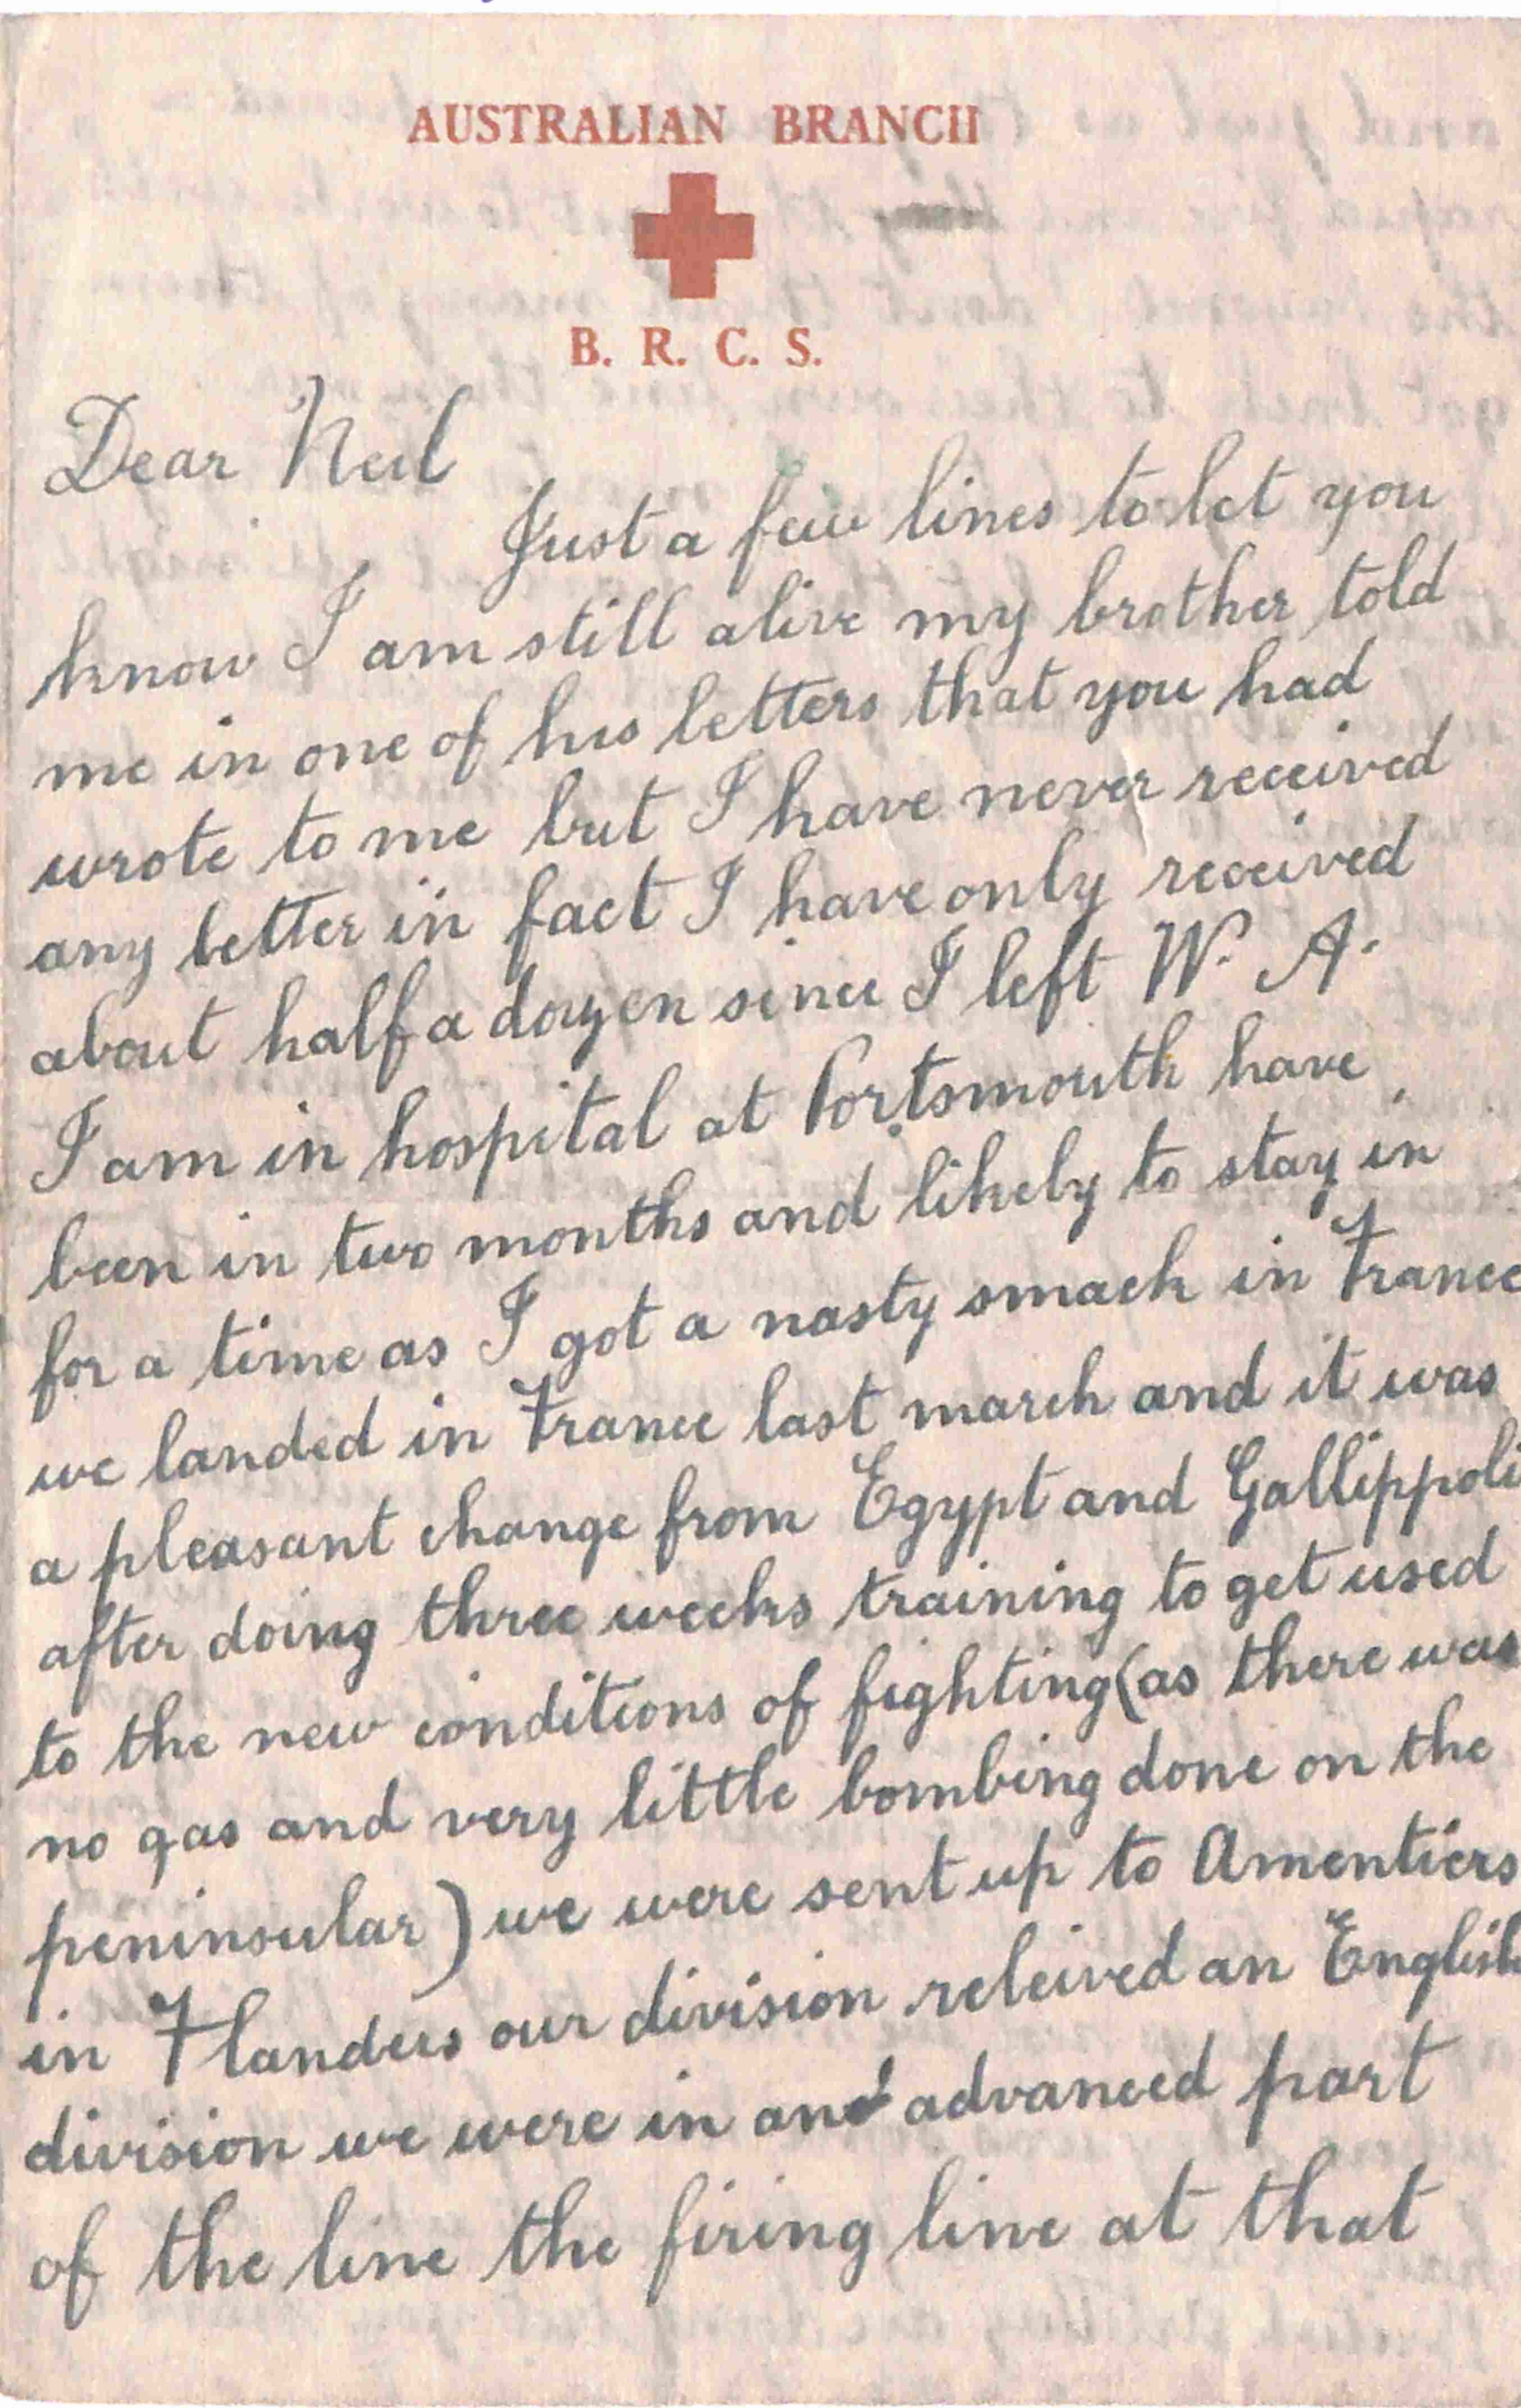 AUSTRALIAN BRANCH
B. R. C. S.
Dear Neil
Just a few lines to let you
know I am still alive my brother told
me in one of his letters that you had
wrote to me but I have never received
any letter in fact I have only received
about half a dozen since I left W. A.
I am in hospital at Portsmouth have
been in two months and likely to stay in
for a time as I got a nasty smack in France
we landed in France last march and it was
a pleasant change from Egypt and Gallippoli
after doing three weeks training to get used
to the new conditions of fighting (as there was
no gas and very little bombing done on the
peninsular) we were sent up to Amentiers
in Flanders our division releived an English
division we were in an advanced part
of the line the firing line at that